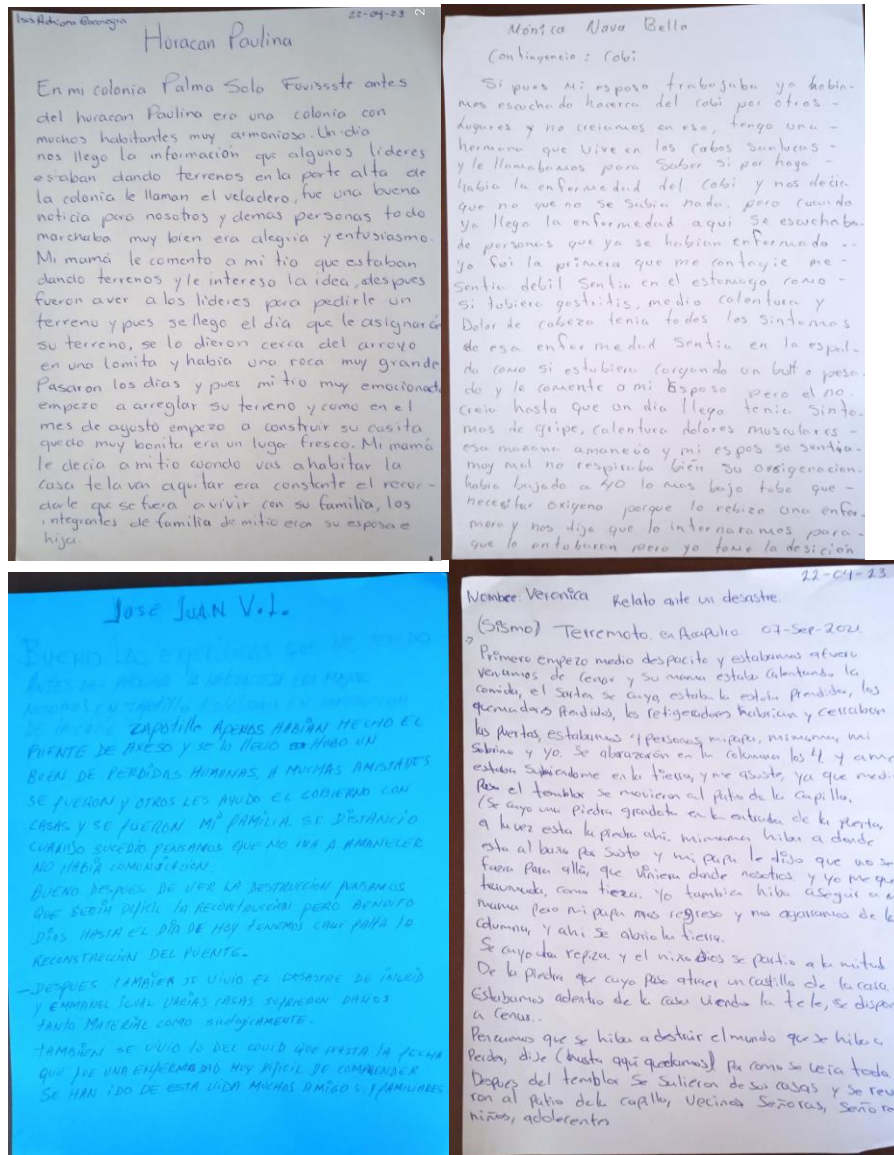 Isis Adriana Barenogra
22-04-23
Huracan Paulina
En mi colonia Palma Sola Fovissste antes
del huracan Paulina era una colonia con
muchos habitantes muy armonioso. Un dia
nos llego la información que algunos lideres
estaban dando terrenos en la parte alta de
la colonia le llaman el veladero, fue una buena
noticia para nosotros y demas personas todo
marchaba muy bien era alegria y entusiasmo.
Mi mamá le comento a mi tio que estaban
dando terrenos y le intereso la idea, despues
fueron a ver a los lideres para pedirle un
terreno y pues se llego el dia que le asignarán
su terreno, se lo dieron cerca del arroyo
en una lomita y habia una roca muy grande
Pasaron los dias y pues mi tio muy emocionado
empezo a arreglar su terreno y como en el
mes de agosto empezo a construir su casita
quedo muy bonita era un lugar fresco. Mi mamá
le decia a mi tio cuando vas a habitar la
casa te la van a quitar era constante el recor-
darle que se fuera a vivir con su familia, los
integrantes de familia de mi tio eran su esposa e
hija.
Mónica Nava Bello
Contingencia: Cobi
Si pues mi esposo trabajaba ya habia-
mos escuchado hacerca del cobi por otros -
lugares y no creiamos en eso, tengo una -
hermana que vive en los cabos sanlucas -
y le llamabamos para saber si por haya -
habia la enfermedad del cobi y nos decia
que no que no se sabia nada, pero cuando
ya llego la enfermedad aqui se escuchaba
de personas que ya se habian enfermado --
yo fui la primera que me contagie me -
sentia debil sentia en el estomago como -
si tubiera gastritis, medio calentura y
Dolor de cabeza tenia todos los sintomas
de esa enfermedad sentia en la espal-
da como si estubiera cargando un bulto pesa-
do y le comente a mi Esposo pero el no
creia hasta que un dia llego tenia sinto-
mas de gripe, calentura dolores musculares -
esa mañana amanecio y mi espos se sentia
muy mal no respiraba bién su oxsigenacion
habia bajado a 40 lo mas bajo tubo que -
necesitar oxigeno porque lo rebizo una enfer-
mera y nos dijo que lo internaramos para -
que lo entubaran pero yo tome la desición
JOSE JUAN V.L.
BUENO LAS EXPERIENCIAS QUE HE TENIDO
ANTES DEL
NOSOTROS EN ZAPOTILLO
DE LA CALLE ZAPOTILLO APENAS HABÍAN HECHO EL
PUENTE DE AXESO Y SE LO LLEVO HOBO UN
BUEN DE PERDIDAS HUMANAS, A MUCHAS AMISTADES
SE FUERON Y OTROS LES AYUDO EL GOBIERNO CON
CASAS Y SE FUERON MI FAMILIA. SE DISTANCIO
CUANDO SUCEDIÓ PENSAMOS QUE NO IVA A AMANECER
NO HABÍA COMUNICACION.
BUENO DESPUES DE VER LA DESTRUCCION PENSAMOS
QUE SERIA DIFICIL LA RECONTRUCCION PERO BENDITO
DIOS HASTA EL DÍA DE HOY TENEMOS CASI PARA LA
RECONSTRUCCION DEL PUENTE.-
-DESPUES TAMBIEN SE VIVIO EL DESASTRE DE INGRID
Y EMMANEL IGUAL VARIAS CASAS SUFRIERON DAÑOS
TANTO MATERIAL COMO SICOLOGICAMENTE.
TAMBIEN SE VIVIO LO DEL COVID QUE HASTA LA FECHA
QUE FUE UNA ENFERMEDAD MUY DIFICIL DE COMPRENDER
SE HAN IDO DE ESTA VIDA MUCHOS AMIGOS Y FAMILIARES
22-04-23
Nombre: Veronica Relato ante un desastre.
(Sismo) Terremoto. en Acapulco 07-Sep-2021
Primero empezo medio despacito y estabamos afuera
veniamos de cenar y su mama estaba calentando la
comida, el sarten se cayo, estaba la estufa prendida, los
quemadores Prendidos, los refigeradores habrian y cerraban
las puertas, estabamos 4 personas, mi papa, mi mama, mi
sobrino y yo. Se abarazarón en la columna los 4 y a mi
estaba subiendome en la tierra, y me asuste, ya que medio
Paso el temblor se movieron al patio de la capilla.
(Se cayo una piedra grandota en la entrada de la puerta,
a la vez esta la piedra ahi. mi mama hiba a donde
esta al baño por susto y mi papa le dijo que no se
fuera para allá, que viniera donde nosotros, y yo me que
traumada, como tieza. Yo tambien hiba a seguir a
mama pero mi papa nos regreso y nos agarramos de la
columna, y ahi se abrio la tierra.
Se cayo una repiza y el niño dios se partio a la mitad
De la piedra que cayo paso a traer un castillo de la casa
Estabamos adentro de la casa viendo la tele, se dispon
a cenar..
Pensamos que se hiba a destruir el mundo que se hiba a
Perder, dije (hasta aquí quedamos) por como se veia todo.
Despues del temblor se salieron de sus casas y se reu
ron al patio de la capilla, vecinos, señoras, señores
niños, adolecentes